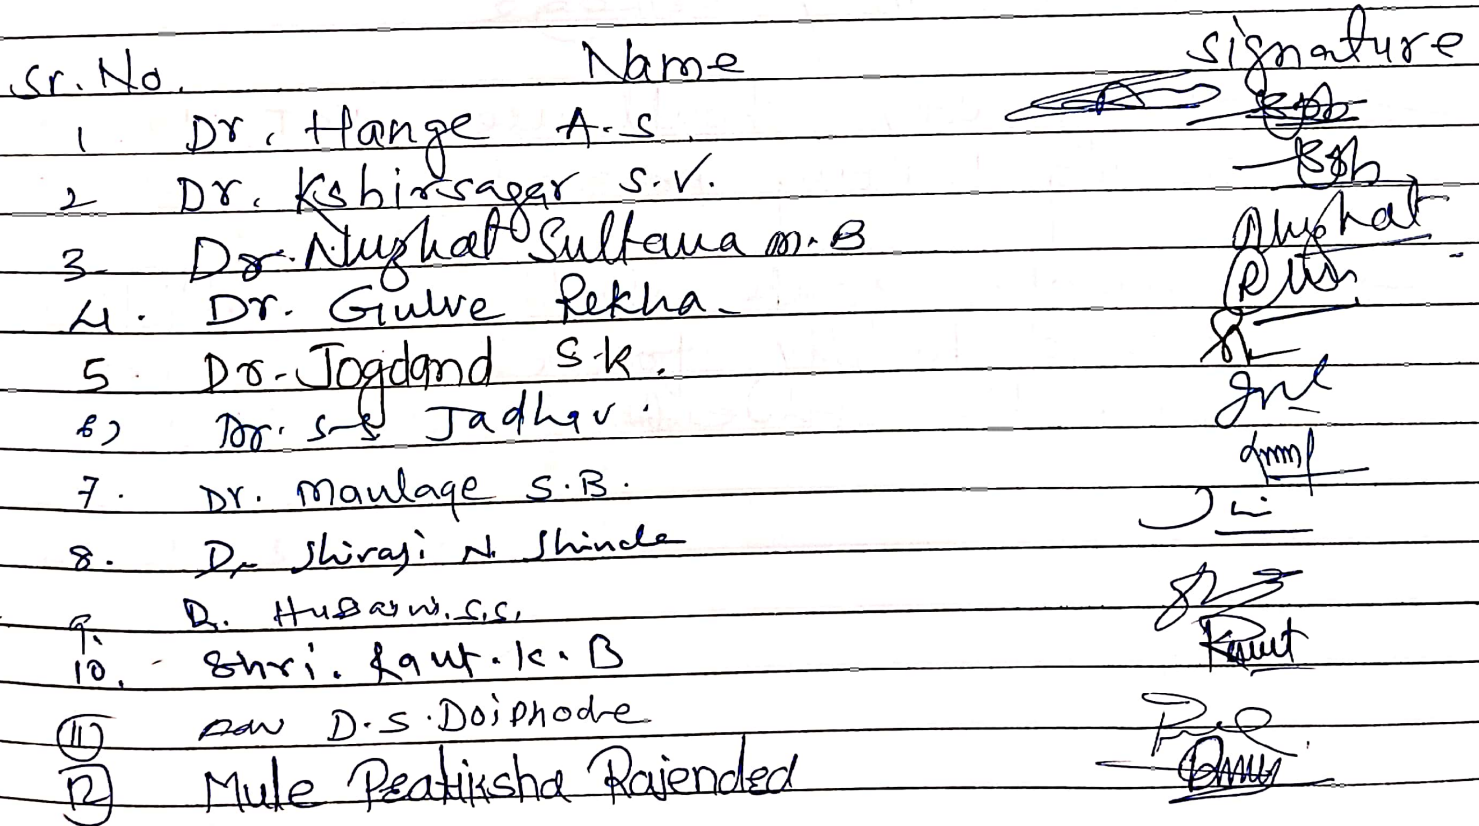 Sr. No. Name Signature
1 Dr. Hange A.S.
2 Dr. Kshirsagar S.V.
3 Dr. Nuzhat Sultana M.B Nuzhat
4. Dr. Gulve Rekha
5. Dr. Jogdand S.K.
6) Dr. S.S Jadhav
7. Dr. Maulage S.B.
8. Dr Shivaji N. Shinde
9. D. Husaini.S.S.
10. Shri. Raut. K. B Raut
11 D.S. Doiphode
12 Mule Peatiksha Rajended